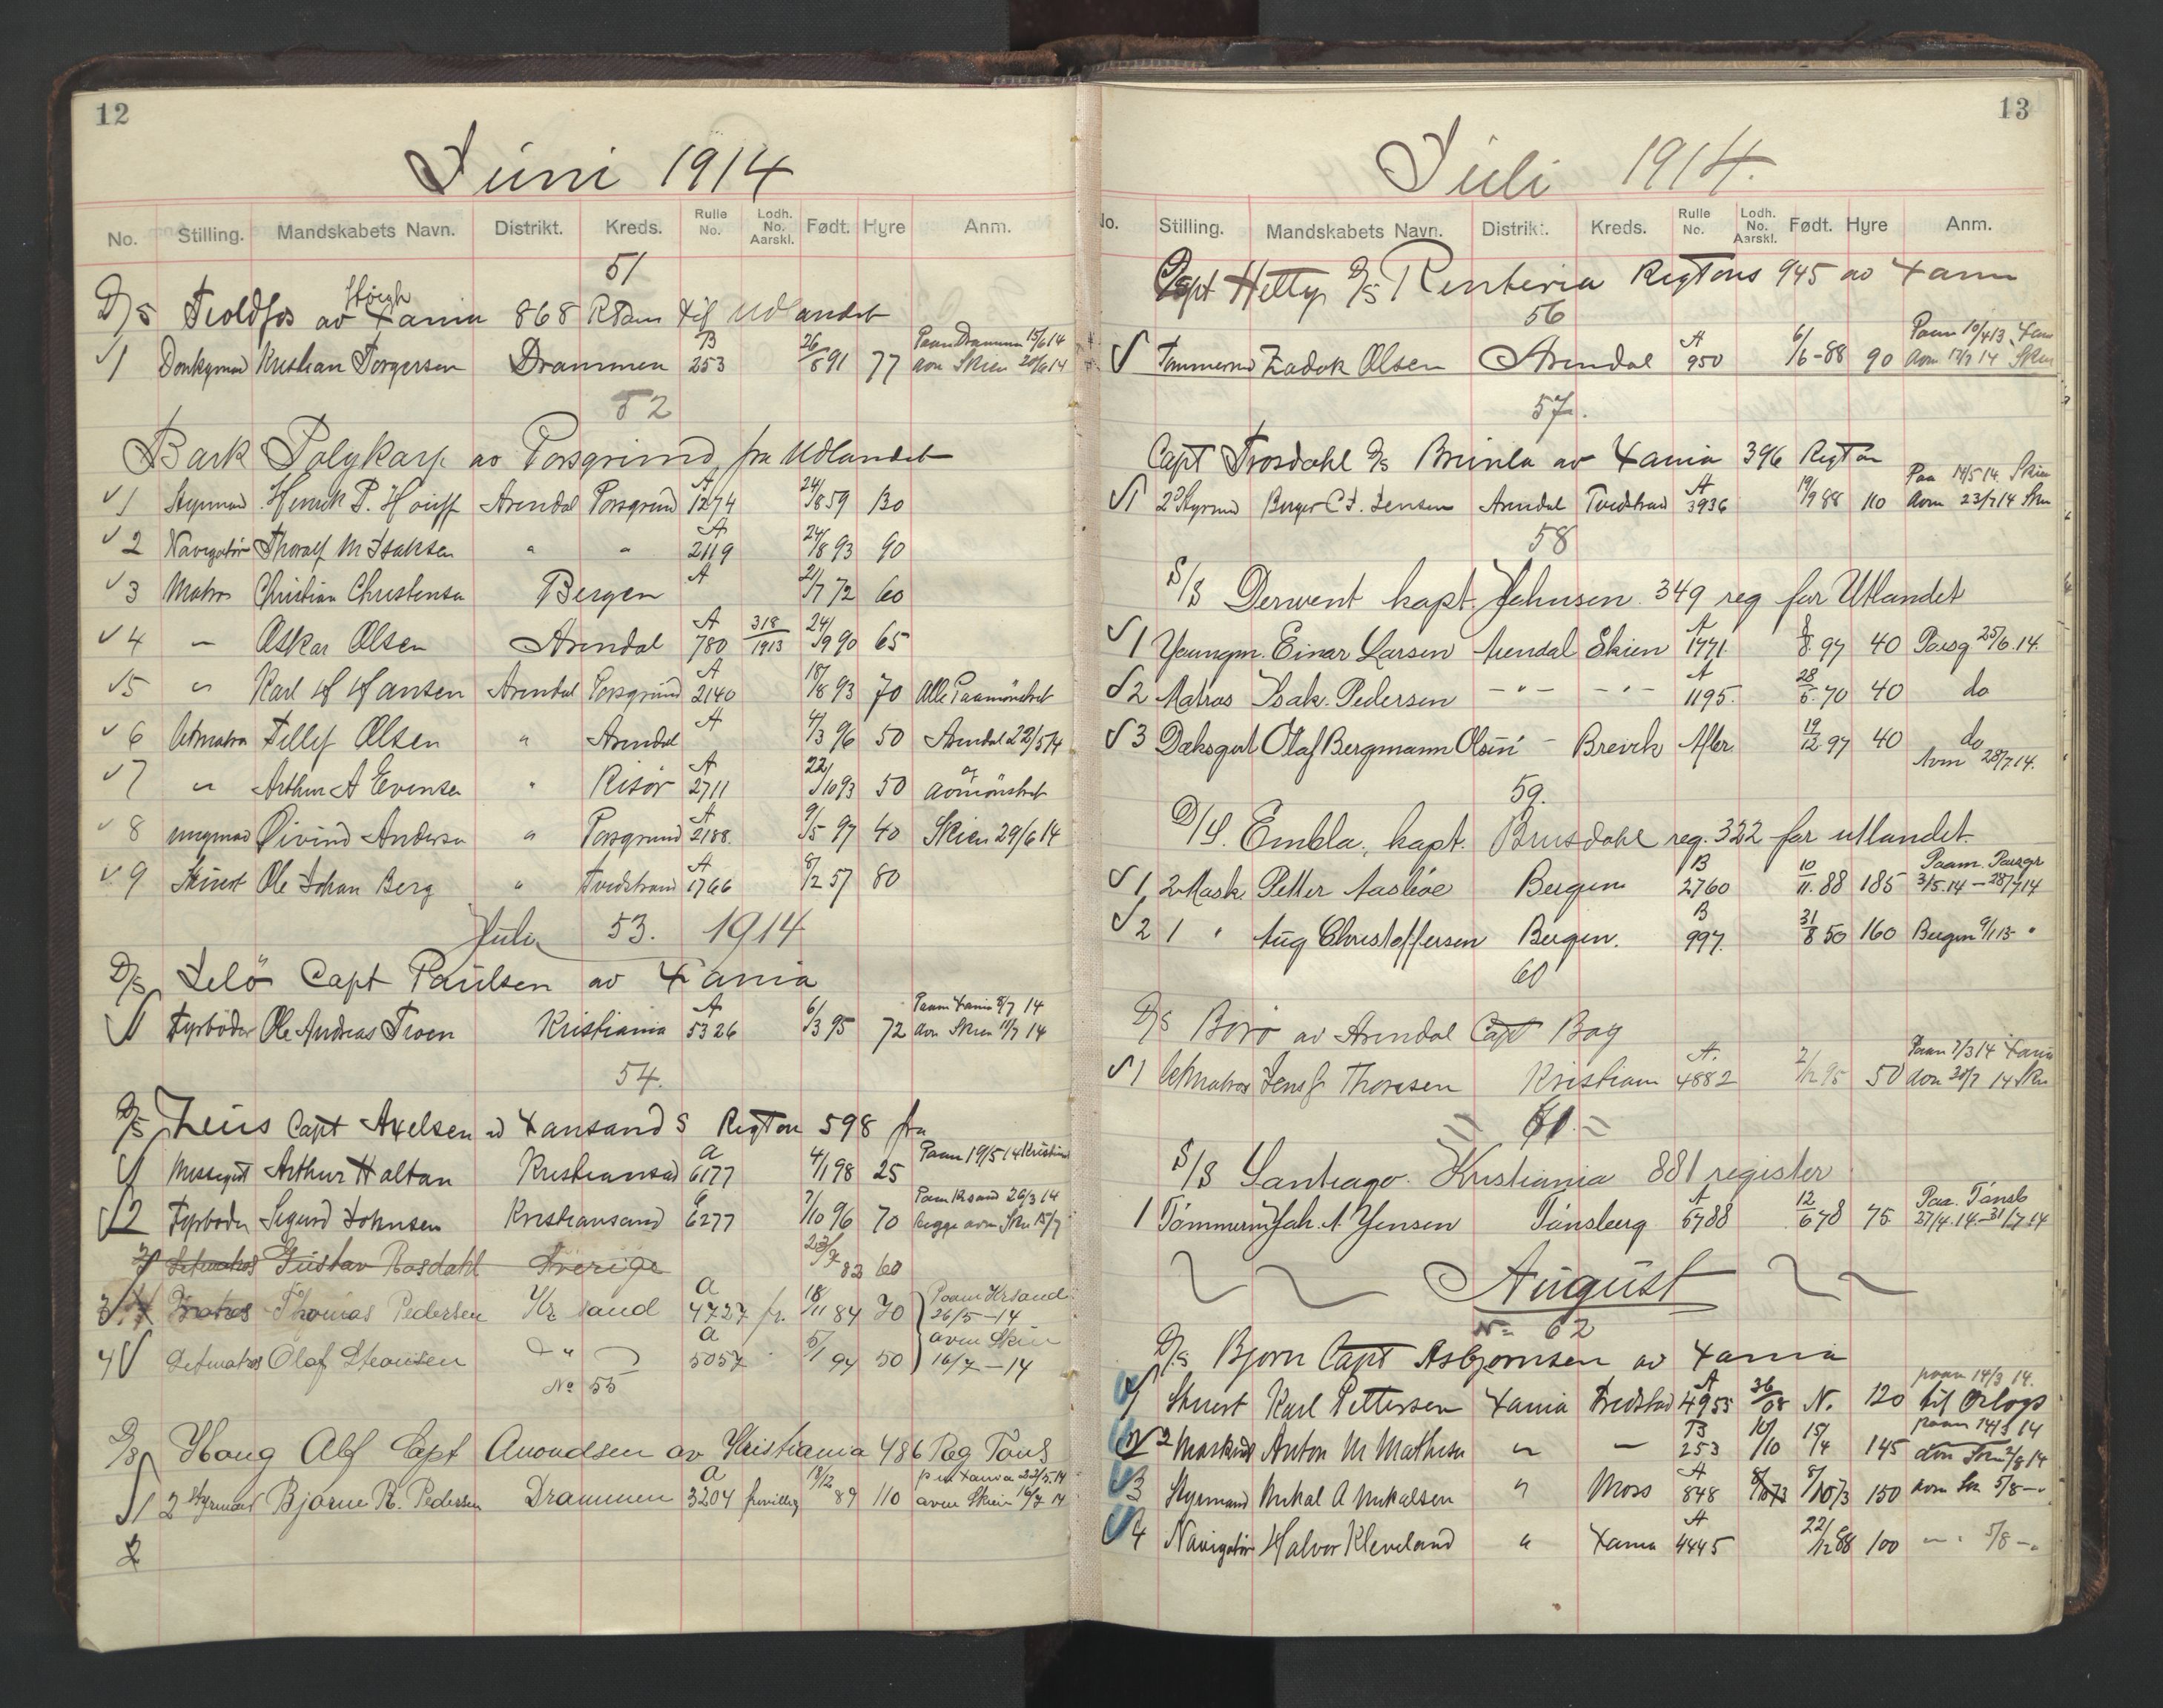 12
Juni 1914
No. Stilling. Mandskabets Navn. Distrikt. Kreds. Rulle No. Lodh. No. Aarskl. Født. Hyre Anm.
51
Høegh
D/S Troldfos av Xania 868 RTon til Udlandet
√1 Donkymand Kristian Torgersen Drammen B 253 26/8 91 77 Paam Drammen 15/6 14 avm Skien 20/6 14
52
Bark Polykarp av Porsgrund fra Udlandet
√1 Styrmand Henrik P. Arendal Porsgrund A 1274 24/8 59 130
√2 Navigatör Thoralf M Isaksen " " A 2119 24/8 93 90
√3 Matros Christian Christensen Bergen A 21/7 72 60
√4 — Oskar Olsen Arendal A 780 318/1913 24/9 90 65
√5 " Karl H Hansen Arendal Porsgrund A 2140 18/8 93 70 Alle Paamönstret
√6 Letmatros Tellef Olsen " Arendal A 4/3 96 50 Arendal 22/5 14
√7 " Arthur A Evensen " Risör A 2711 22/10 93 50 og avmönstret
√8 ungmand Øivind Andersen " Porsgrund A 2188. 9/5 97 40 Skien 29/6 14
√9 Stuert Ole Johan Berg " Tvedstrand A 1766 8/2 57 80
Juli 53. 1914
D/S Jelö Capt Paulsen av Xania
√1 Fyrböder Ole Andreas Troen Kristiania A 5326 6/3 95 72 Paam Xania 8/7 14 avm Skien 11/7 14
54.
D/S Zeus Capt Axelsen av Xansand S RegTon 598 fra
√1 Messegut Arthur Haltan Kristiansad a 6177 4/1 98 25 Paam 19/5 14 Kristian
√2 Fyrböder Sigurd Johnsen Kristiansand a 6277 7/10 96 70 Paam Krsand 26/3 14 begge avm Skn 15/7
3 Letmatros Gustav Rosdahl Sverige 23/7 82 60
3 Matros Thomas Pedersen Kr sand a 4727 fr. 18/11 84 70 Paam Krsand 26/5 – 14
4√ Letmatros Olaf " a 5057 5/1 94 50 avm Skien 16/7 – 14
No 55
D/S Haug Alf Capt Amondsen av Kristiania 486 Reg Tons
√1 2 Styrmand Bjarne R. Pedersen Drammen a 3204 frivillig 18/12 89 110 pm Xania 22/5.14 avm Skien 16/7 14
2
13
Juli 1914.
No. Stilling. Mandskabets Navn. Distrikt. Kreds. Rulle No. Lodh. No. Aarskl. Født. Hyre Anm.
Capt Hettep D/S Renteria RegTons 945 av Xania
56
√ Tømmermd Zadok Olsen Arendal A 950 6/6-88 90 Paam 10/4 13 Xania avm 17/7 14 Skien
57.
Capt Trosdahl D/S Brunla av Xania 396 RegTon
√1 2d Styrmd Berger C. J. Jensen Arendal Tvedstrand A 3936 19/9 88 110 Paa 14/5 14 Skien avm 23/7 14 Skn
58
S/S Derwent kapt. Johnsen. 349 reg for Utlandet
√1 Youngm. Einar Larsen Arendal Skien A 1771. 8/8. 97 40 Porsg 25/6. 14.
√2 Matros Isak. Pedersen — " — — " — A 1195. 28/5. 70 40 do
√3 Dæksgut Olaf Bergmann Olsen " Brevik Afler. 19/12 97 40 do Avm 28/7 14.
59.
D/S. Embla, kapt. Brusdahl reg. 322 for utlandet.
√1 2 Mask. Petter Aasböe Bergen B 2760 10/11. 88 185 Paam. Porsgr 3/5.14 – 28/7 14
√2 1 " Aug Christoffersen Bergen. B 997. 31/8 50 160 Bergen 9/1 13 "
60
D/S Borö av Arendal Capt Bog
√1 Letmatros Jens G Thorsen Kristiania A. 4882 2/12 95 50 Paam 7/3 14 Xania avm 30/7 14 Skn
61.
S/S Santiago. Kristiania 881 register
1 Tömmerm Joh. A. Jensen Tönsberg A 5788 12/6 78 75 Paa. Tönsb 27/4. 14 – 31/7 14
August
No 62
D/S Bjorn Capt Asbjornsen av Xania
√1 Stuert Karl Pettersen Xania Fredstad A 4955 36/08 N. 120 paam 14/3 14. til Orlogs
√2 Maskinst Anton M Mathisen " — B 253 10/10 15/4 145 paam 14/3 14 avm Skn 2/8 14
√3 Styrmand Mikal A Mikalsen " Moss A 848 8/10 73 8/10 73 150 avm Skn 5/8 – "
√4 Navigatör Halvor Kleveland " Xania A 4445 22/12 88 100 — " 5/8 – "